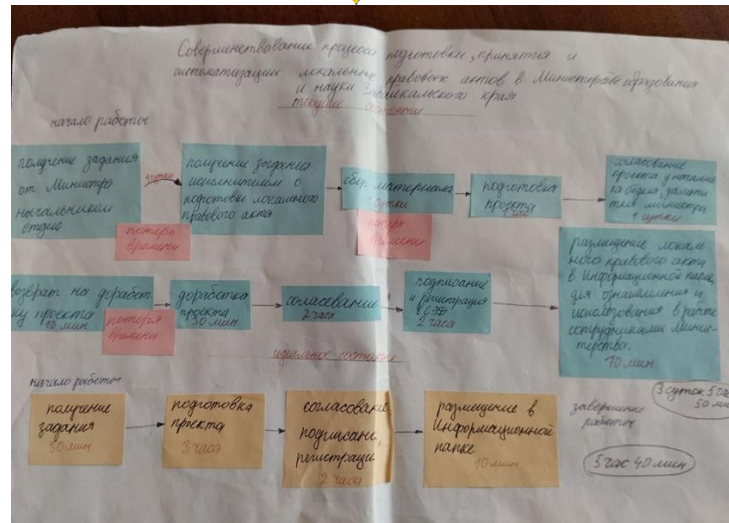 Совершенствование процесса подготовки, принятия и
систематизации локальных правовых актов в Министерстве образования
и науки Забайкальского края
текущее состояние
начало работы
получение задания
от Министра
начальником
отдела
потеря
времени
1 сутки
получение задания
исполнителем о
подготовке локального
правового акта
сбор материала
1 сутки
потеря
времени
подготовка
проекта
1 час
согласование
проекта у начальни
ка отдела, замести
теля министра
1 сутки
возврат на доработ
ку проекта
10 мин
потеря
времени
доработка
проекта
30 мин
согласование
2 часа
подписание
и регистрация
2 часа
размещение локаль
ного правового акта
в Информационной папке
для ознакомления и
использования в работе
сотрудниками Минис-
терства.
10 мин
3 суток 5 час
50 мин
идеальное состояние
начало работы
получение
задания
30 мин
подготовка
проекта
3 часа
согласование
подписани,
регистраци
2 часа
размещение в
Информационной
папке
10 мин
завершение
работы
5 час 40 мин